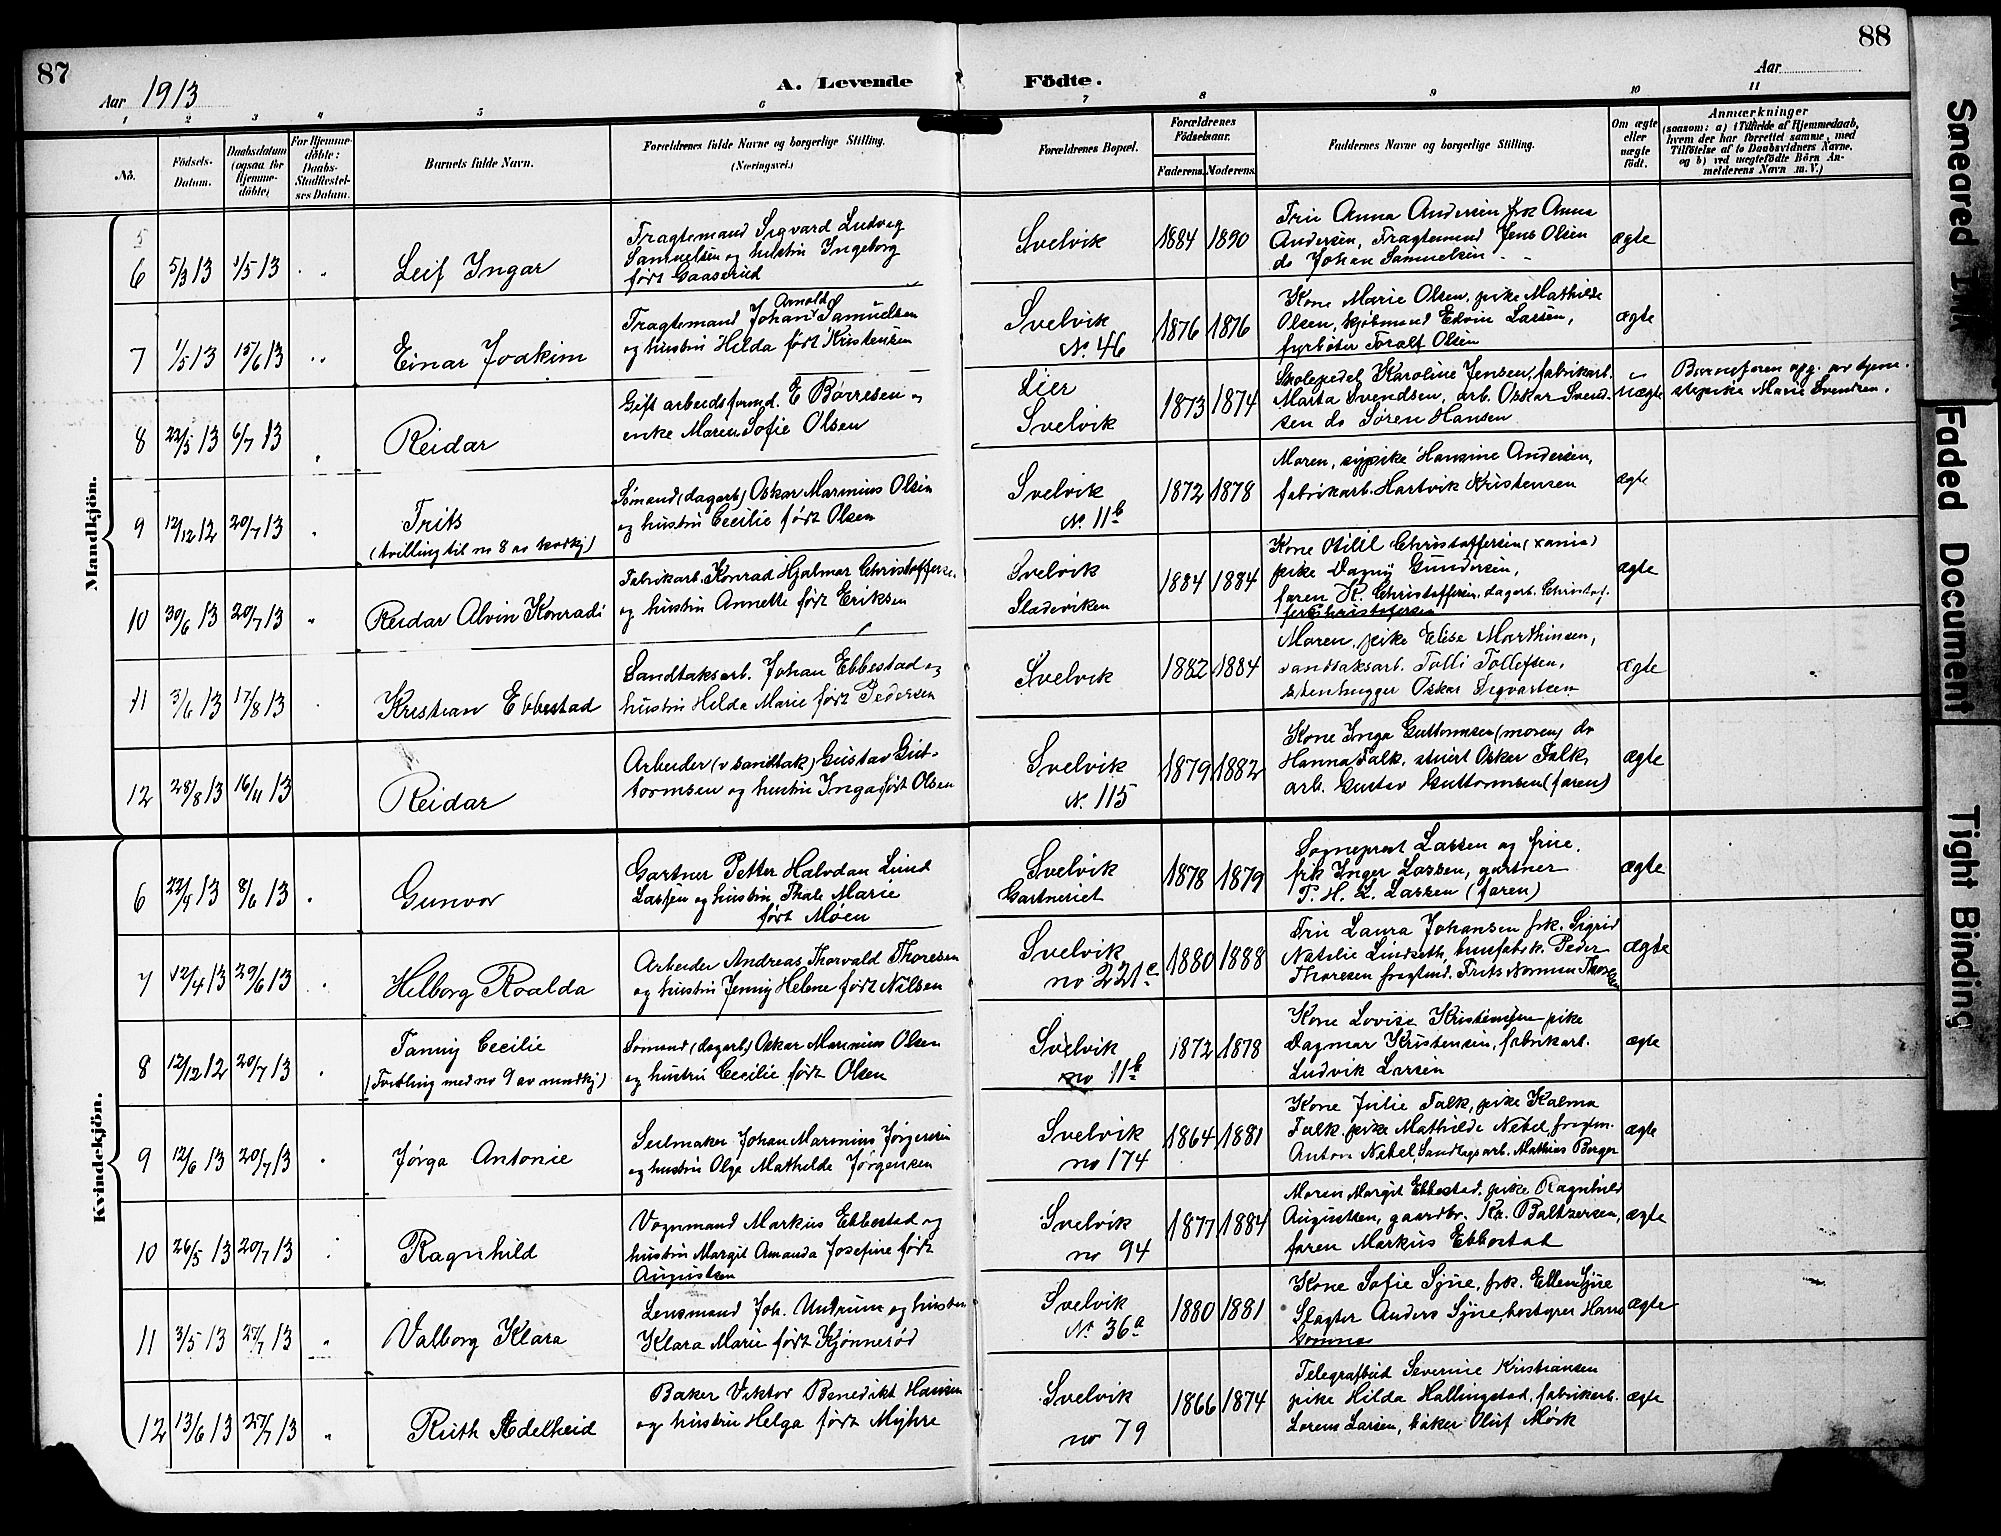 87
88
Aar 1913
A. Levende Födte.
Aar
1 2 3 4 5 6 7 8 9 10 11
No.
Födsels-Datum.
Daabsdatum (ogsaa för Hjemme-döbte)
For Hjemme-döbte: Daabs-Stadfæstel-ses Datum.
Barnets fulde Navn.
Forældrenes fulde Navne og borgerlige Stilling.
(Næringsvei.)
Forældrenes Bopæl.
Forældrenes Födselsaar.
Faderens. Moderens.
Faddernes Navne og borgerlige Stilling.
Om ægte eller uægte födt.
Anmærkninger
(saasom: a) i Tilfælde af Hjemmedaab,
hvem der har forrettet samme, med
Tilföielse af to Daabsvidners Navne,
og b) ved uægtefödte Börn An-
melderens Navn m. V.)
Mandkjön.
5
6 5/3 13 1/5 13 Leif Ingar
Fragtemand Sigvard Ludvig
Samuelsen og hustru Ingeborg
født Gaaserud
Svelvik
1884 1890
Fru Anna Andersen frk Anna
Andersen, Fragtemand Jens Olsen
do Johan Samuelsen
ægte
7 1/5 13 15/6 13 Einar Joakim
Arnold
Fragtemand Johan Samuelsen
og hustru Hilda født Kristensen
Svelvik
No 46
1876 1876
Kone Marie Olsen, pike Mathilde
Olsen, kjøbmand Edvin Larsen,
fyrbøter Toralf Olsen
ægte
8 22/5 13 6/7 13 Reidar
Gift arbeidsformd. E Børresen og
enke Maren Sofie Olsen
Lier
Svelvik
1873 1874
Karoline Jensen, fabrikarb.
Marta Svendsen, arb. Oskar Svend-
sen do Søren Hansen
uægte
Barnefaren opg. av tjene-
stepike Marie Svendsen.
9 12/12 12 20/7 13 Frits
(tvilling til no 8 av kvdkj)
Sømand (dagarb) Oskar Marinius Olsen
og hustru Cecilie født Olsen
Svelvik
No 11b
1872 1878
Moren, sypike Hansine Andersen,
fabrikarb. Hartvik Kristensen
ægte
10 30/6 13 20/7 13 Reidar Alvin Konradi
Fabrikarb. Konrad Hjalmar Christoffersen
og hustru Annette født Eriksen
Svelvik
Sladeviken
1884 1884
Kone Otilil Christoffersen
pike Dagny Gundersen,
faren K. Christoffersen, dagarb. Christof.
fer Christofersen
ægte
11 3/6 13 17/8 13 Kristian Ebbestad
Sandtaksarb. Johan Ebbestad og
hustru Hilda Marie født Pedersen
Svelvik
1882 1884
Moren, pike Elise Marthinsen,
sandtaksarb. Tolli Tollefsen,
stenhugger Oskar Sigvartsen
ægte
12 28/8 13 16/11 13 Reidar
Arbeider (v sandtak) Gustav Gut-
tormsen og hustru Inga født Olsen
Svelvik
No 115
1879 1882
Kone Inga Guttormsen (moren) do
Hanna Falk, stuert Oskar Falk,
arb. Gustav Guttormsen (faren)
ægte
Kvindekjön.
6 22/4 13 8/6 13 Gunvor
Gartner Petter Halvdan Lund
Lassen og hustru Thale Marie
født Moen
Svelvik
Gartneriet
1878 1879
Sogneprest Lassen og frue,
frk Inger Lassen, gartner
P. H. L. Lassen (faren)
ægte
7 12/4 13 29/6 13 Hilborg Roalda
Arbeider Andreas Thorvald Thoresen
og hustru Jenny Helene født Nilsen
Svelvik
no 221c
1880 1888
Fru Laura Johansen frk. Sigrid
Natalie Lindseth, Peder
Thoresen fragtmd. Frits Norman Thoresen
ægte
8 12/12 12 20/7 13 Fanny Cecilie
(Tvilling med no 9 av mandkj)
Sømand (dagarb) Oskar Marinius Olsen
og hustru Cecilie født Olsen
Svelvik
no 11b
1872 1878
Kone Lovise Kristensen pike
Dagmar Kristensen, fabrikarb.
Ludvik Larsen
ægte
9 12/6 13 20/7 13 Jørga Antonie
Seilmaker Johan Marinius Jørgensen
og hustru Olga Mathilde Jørgensen
Svelvik
no 174
1864 1881
Kone Julie Falk, pike Kalma
Falk, pike Mathilde Nebel, fragtm.
Anton Nebel, Sandtagsarb. Mathias Borger
ægte
10 26/5 13 20/7 13 Ragnhild
Vognmand Markus Ebbestad og
hustru Margit Amanda Josefine født
Augustsen
Svelvik
no 94
1877 1884
Moren Margit Ebbestad, pike Ragnhild
Augustsen, gaardbr. Kr. Baltzersen,
faren Markus Ebbestad
ægte
11 3/5 13 27/7 13 Valborg Klara
Lensmand Joh. Undrum og hustru
Klara Marie født Kjønnerød
Svelvik
No 36a
1880 1881
Kone Sofie Syne, frk. Ellen Syne
Slagter Anders Syne, bestyrer Hans
ægte
12 13/6 13 27/7 13 Ruth Adelheid
Baker Viktor Benedikt Hansen
og hustru Helga født Myhre
Svelvik
no 79
1866 1874
Telegrafbud Severine Kristiansen
pike Hilda Hallingstad, fabrikarb.
Lorens Larsen, baker Oluf Mørk
ægte
Smeared Ink
Faded Document
Tight Binding